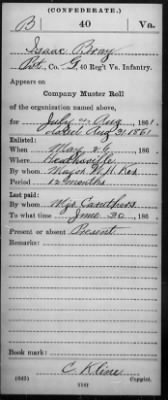 (CONFEDERATE.)
B 40 Va.
Isaac
Pvt., Co. G, 40 Reg't Va. Infantry.
Appears on
Company Muster Roll
of the organization named above,
for July and Aug, 1861.
dated Aug 31, 1861
Enlisted:
When May 26, 186
Where Heathsville
By whom Major
Period 12 months
Last paid:
By whom Mjr Caruthers
To what time June 30, 186
Present or absent Present
Remarks:
Book mark:
C. Kline
(642) Copyist.